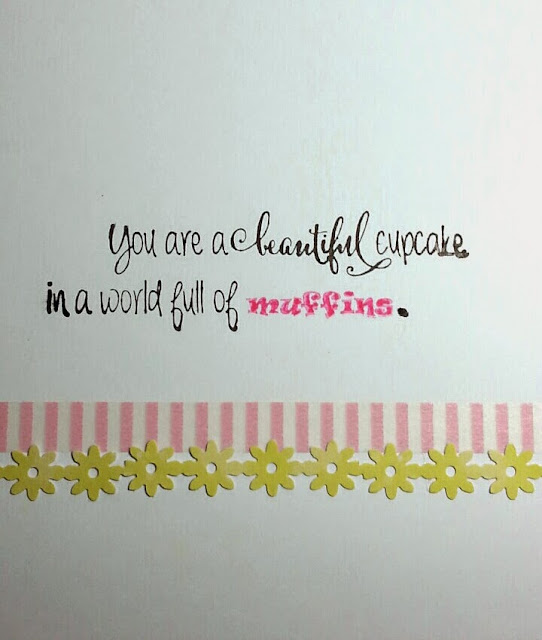 You are a beautiful cupcake
in a world full of muffins.